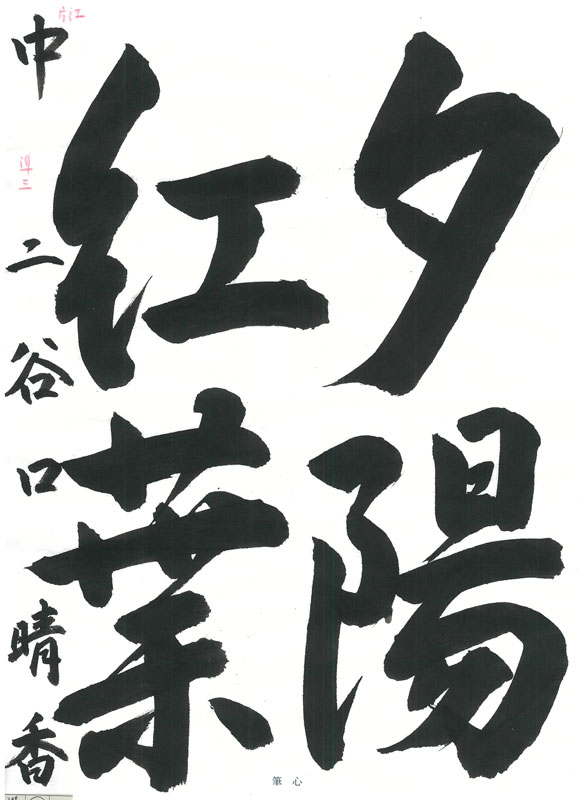 夕陽
紅葉
中二 谷口晴香
準三
筆心